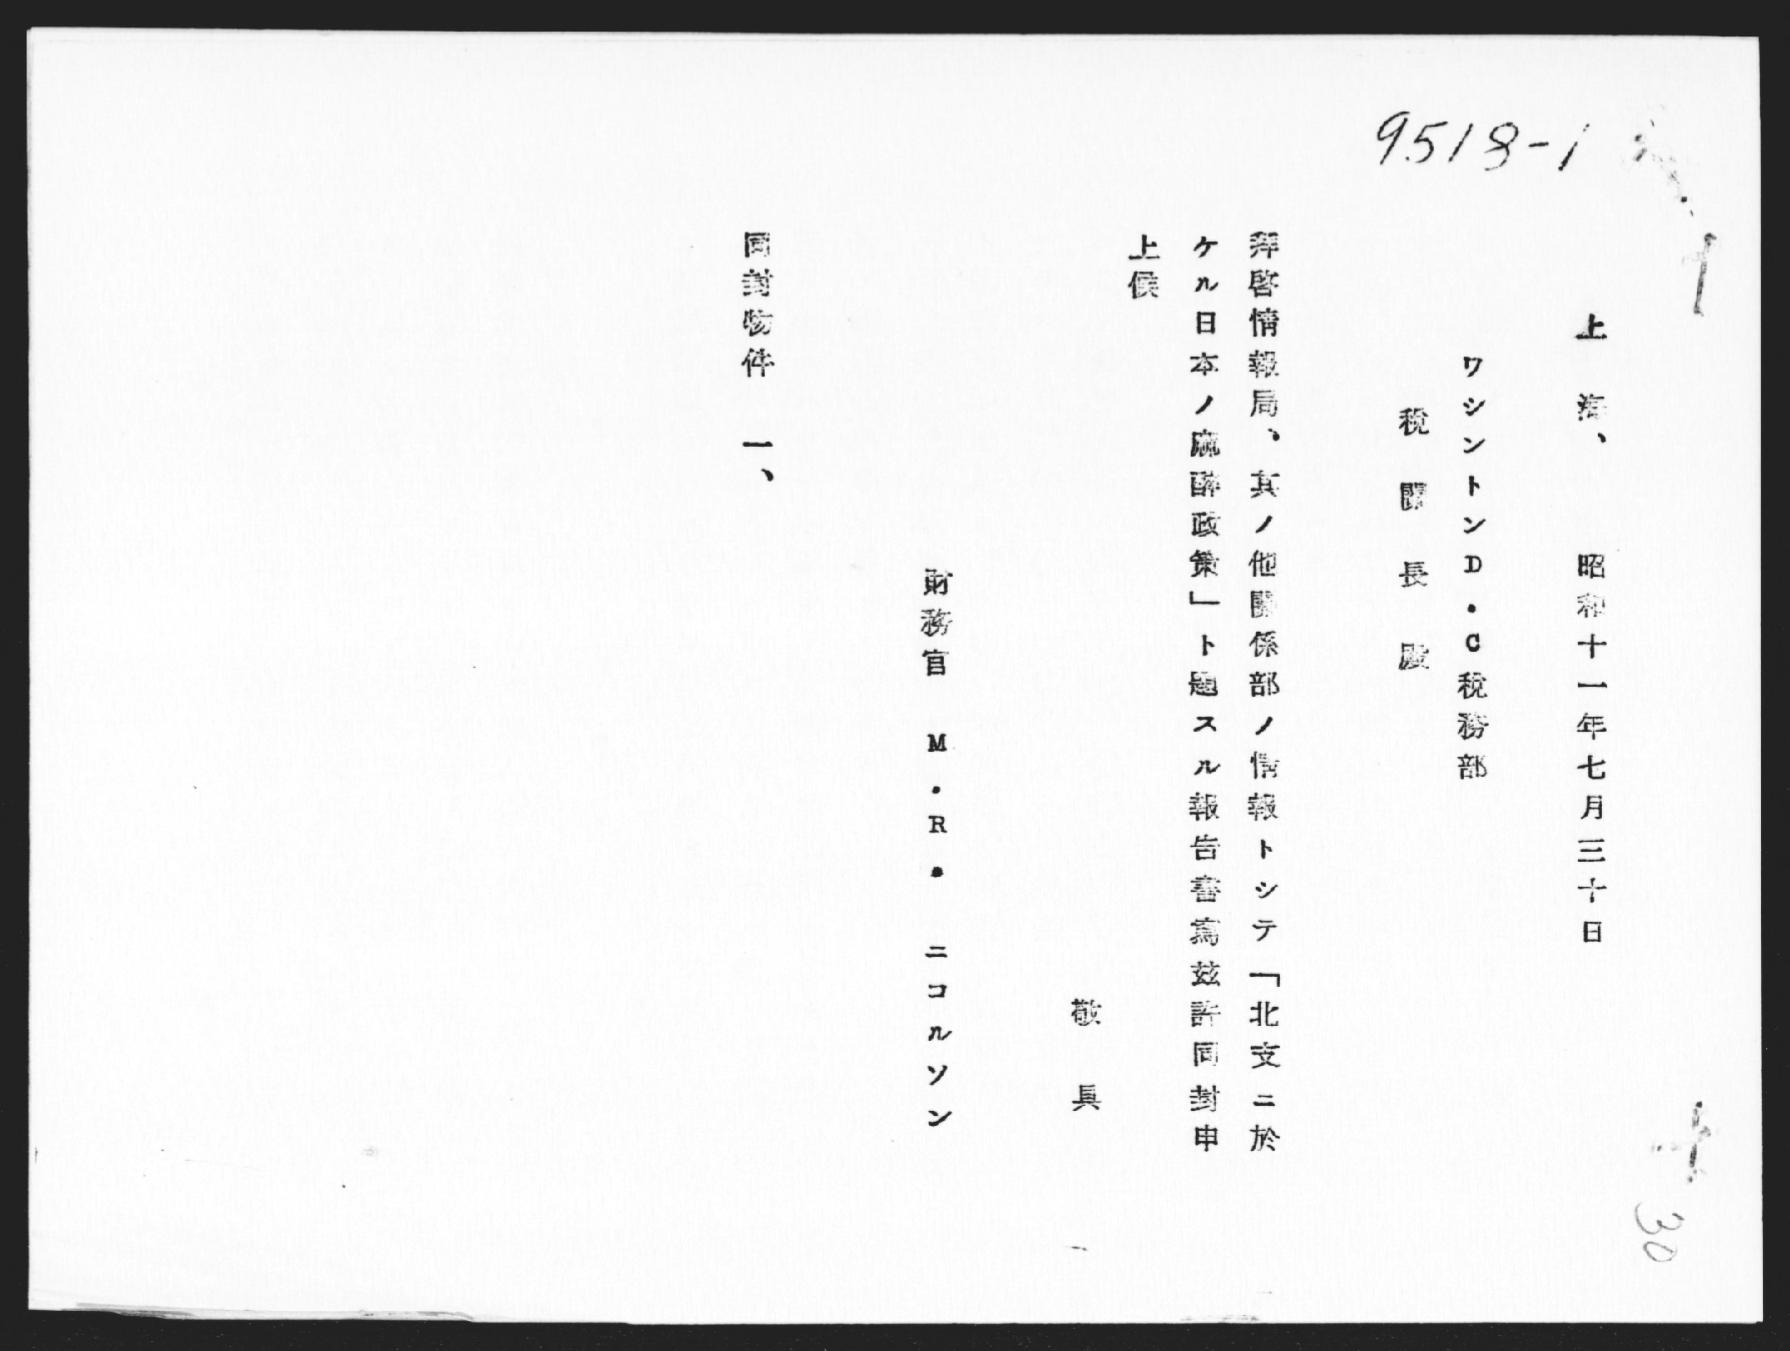 9518-1
上海、 昭和十一年七月三十日
ワシントンD・C税務部
税關長殿
拜啓情報局、其ノ他關係部ノ情報トシテ「北支ニ於
ケル日本ノ麻醉政策」ト題スル報告書寫玆許同封申
上候
敬具
財務官 M・R・ ニコルソン
同封物件 一、
30